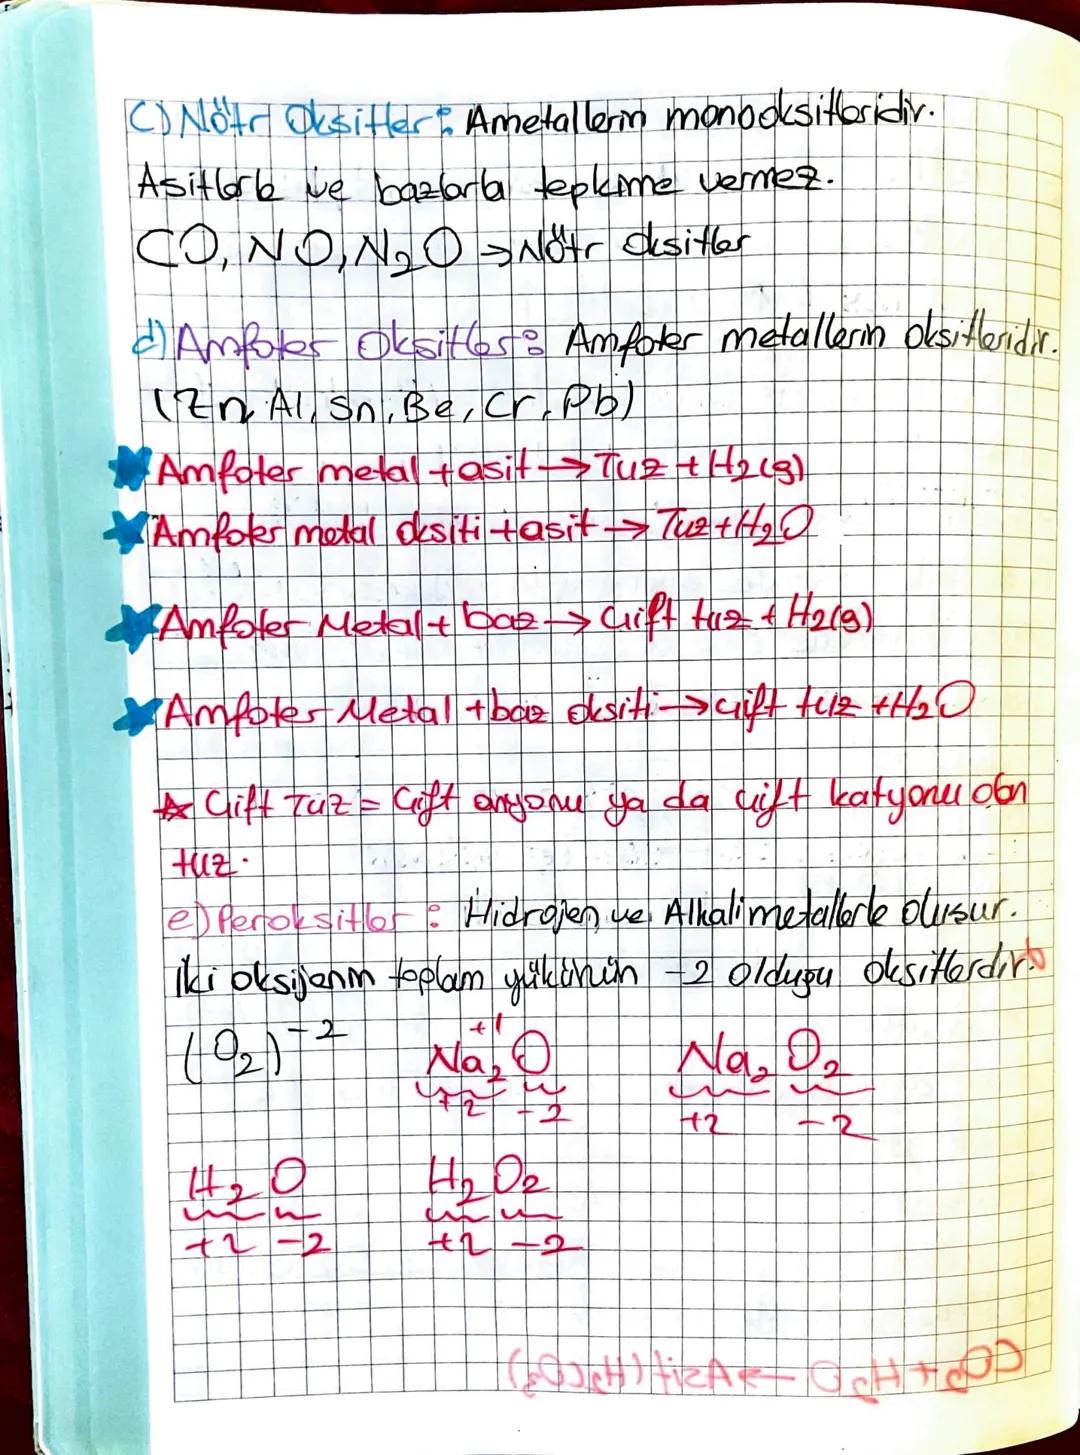 c) Nötr Oksitler: Ametallerin monooksitleridir.
Asitlerle ve bazlarla tepkime vermez.
CO, NO, N₂O → Nötr oksitler
d) Amfoter Oksitler: Amfoter metallerin oksitleridir.
(Zn, Al, Sn, Be, Cr, Pb)
Amfoter metal + asit → Tuz + H₂(g)
Amfoter metal oksiti + asit → Tuz + H₂O
Amfoter Metal + baz → Çift tuz + H₂(g)
Amfoter Metal + baz oksiti → çift tuz + H₂O
☆ Çift Tuz = Çift anyonu ya da çift katyonu olan
tuz.
e) Peroksitler : Hidrojen ve Alkali metallerle oluşur.
İki oksijenin toplam yükünün -2 olduğu oksitlerdir.
(O₂)⁻² Na₂O Na₂O₂
+1
+2 -2 +2 -2
H₂O H₂O₂
+2 -2 +2 -2
CO₂ + H₂O → Asit (H₂CO₃)